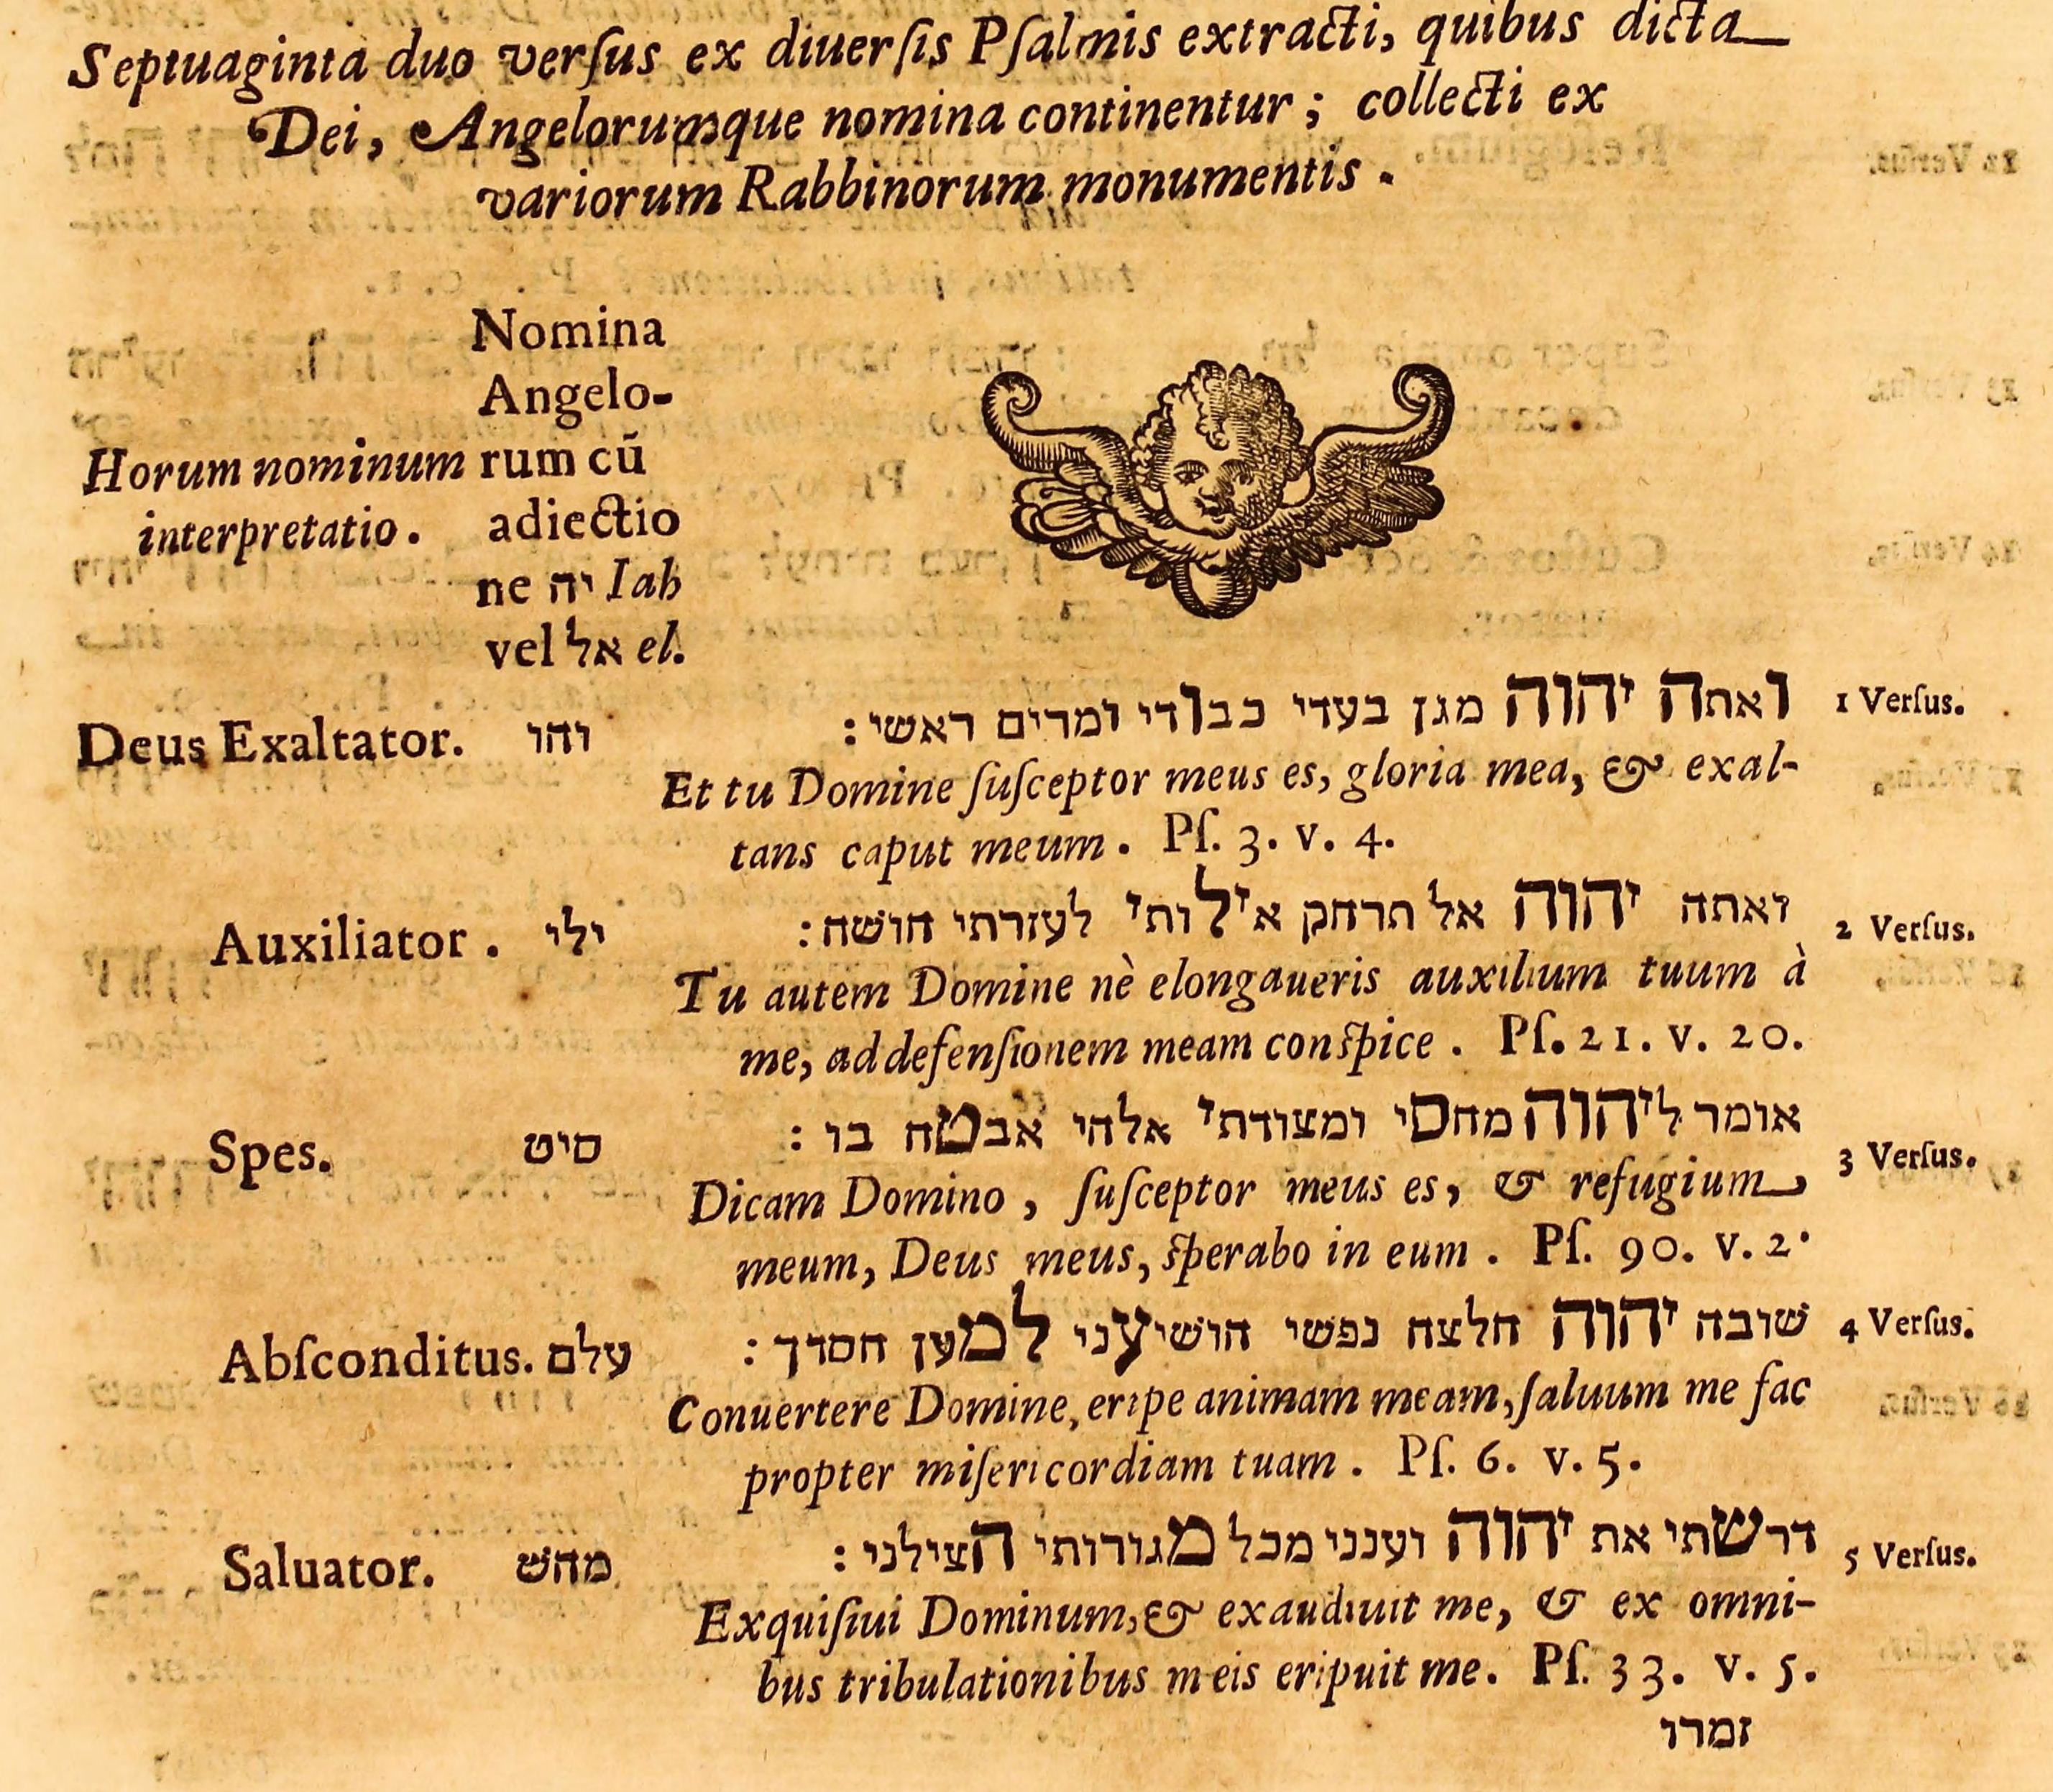 Septuaginta duo verſus ex diuerſis Pſalmis extracti, quibus dicta
Dei, Angelorumque nomina continentur; collecti ex
variorum Rabbinorum monumentis.
Nomina
Angelo-
Horum nominum rum cũ
interpretatio. adiectio
ne יה Iah
vel אל el.
ואתה יהוה מגן בעדי כבודי ומרים ראשי: 1 Verſus.
Deus Exaltator. והו
Et tu Domine ſuſceptor meus es, gloria mea, & exal-
tans caput meum. Pſ. 3. v. 4.
ואתה יהוה אל תרחק אילותי לעזרתי חושה: 2 Verſus.
Auxiliator. ילי
Tu autem Domine nè elongaueris auxilium tuum à
me, ad defenſionem meam conſpice. Pſ. 21. v. 20.
אומר ליהוה מחסי ומצודתי אלהי אבטח בו: 3 Verſus.
Spes. סיט
Dicam Domino, ſuſceptor meus es, & refugium
meum, Deus meus, ſperabo in eum. Pſ. 90. v. 2.
שובה יהוה חלצה נפשי הושיעני למען חסדך: 4 Verſus.
Abſconditus. עלם
Conuertere Domine, eripe animam meam, ſaluum me fac
propter miſericordiam tuam. Pſ. 6. v. 5.
דרשתי את יהוה וענני מכל מגורותי הצילני: 5 Verſus.
Saluator. מהש
Exquiſiui Dominum, & exaudiuit me, & ex omni-
bus tribulationibus meis eripuit me. Pſ. 33. v. 5.
זמרו